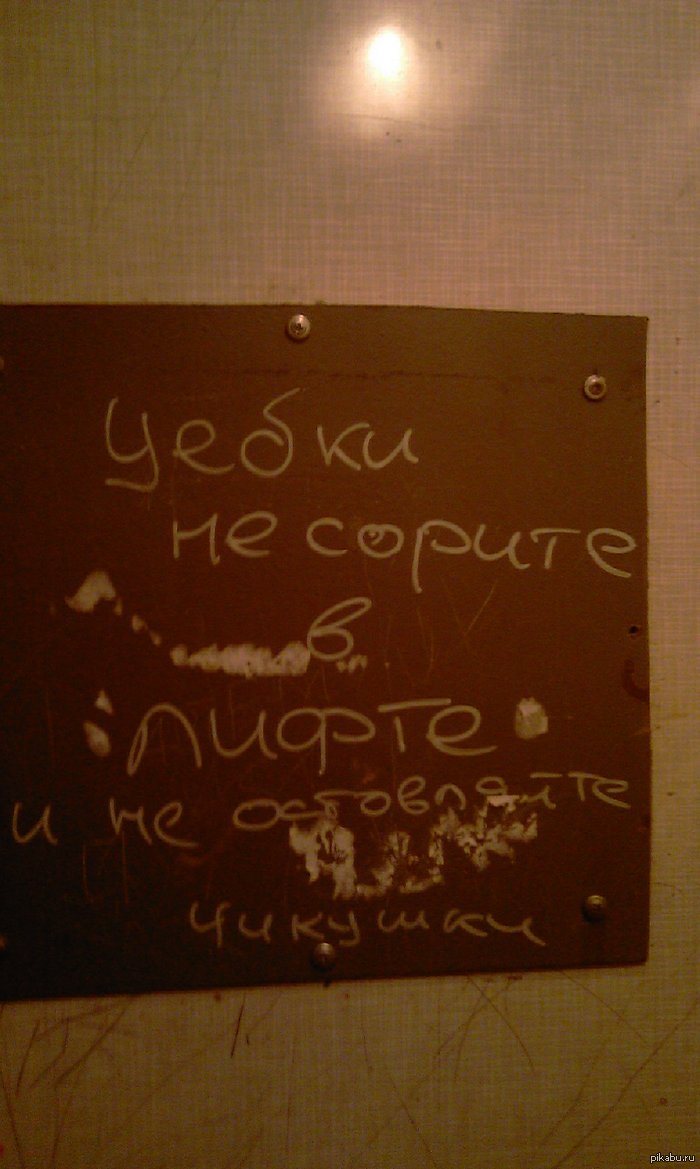 Уебки
не сорите
в
лифте
и не остовляйте
чикушки
pikabu.ru